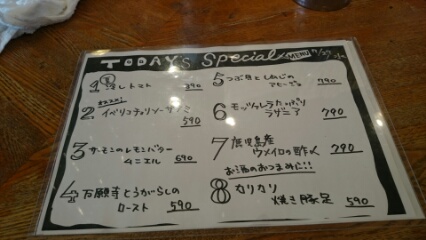 TODAY'S Special MENU
1 冷しトマト 390
オススメ!
2 イベリコチョリソーソーセージ
590
3 サーモンのレモンバター
ムニエル 690
4 万願寺とうがらしの
ロースト 590
5 つぶ貝としめじの
アヒージョ 790
6 モッツァレラたっぷり
ラザニア 790
7 鹿児島産
ウメイロの酢〆 790
お酒のおつまみに!!
8 カリカリ
焼き豚足 590